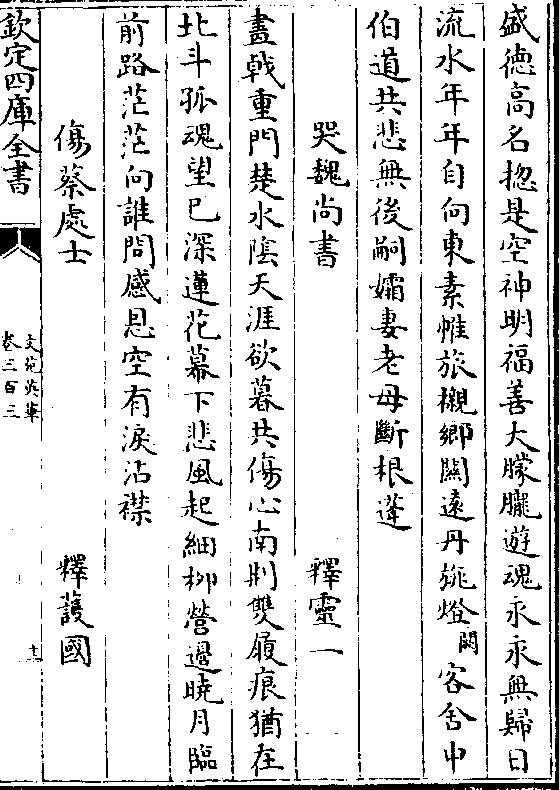 盛德高名揔是空神明福善大朦朧遊魂永永無歸日
流水年年自向東素帷旅櫬鄉關遠丹旐燈闕客舍中
伯道共悲無後嗣孀妻老母斷根蓬
哭魏尚書 釋靈一
畫㦸重門楚水隂天涯欲暮共傷心南荆雙履痕猶在
北斗孤魂望已深蓮花幕下悲風起細栁營邊曉月臨
前路茫茫向誰問感恩空有淚沾襟
傷蔡處士 釋護國
欽定四庫全書
文苑英華
卷三百三
十一